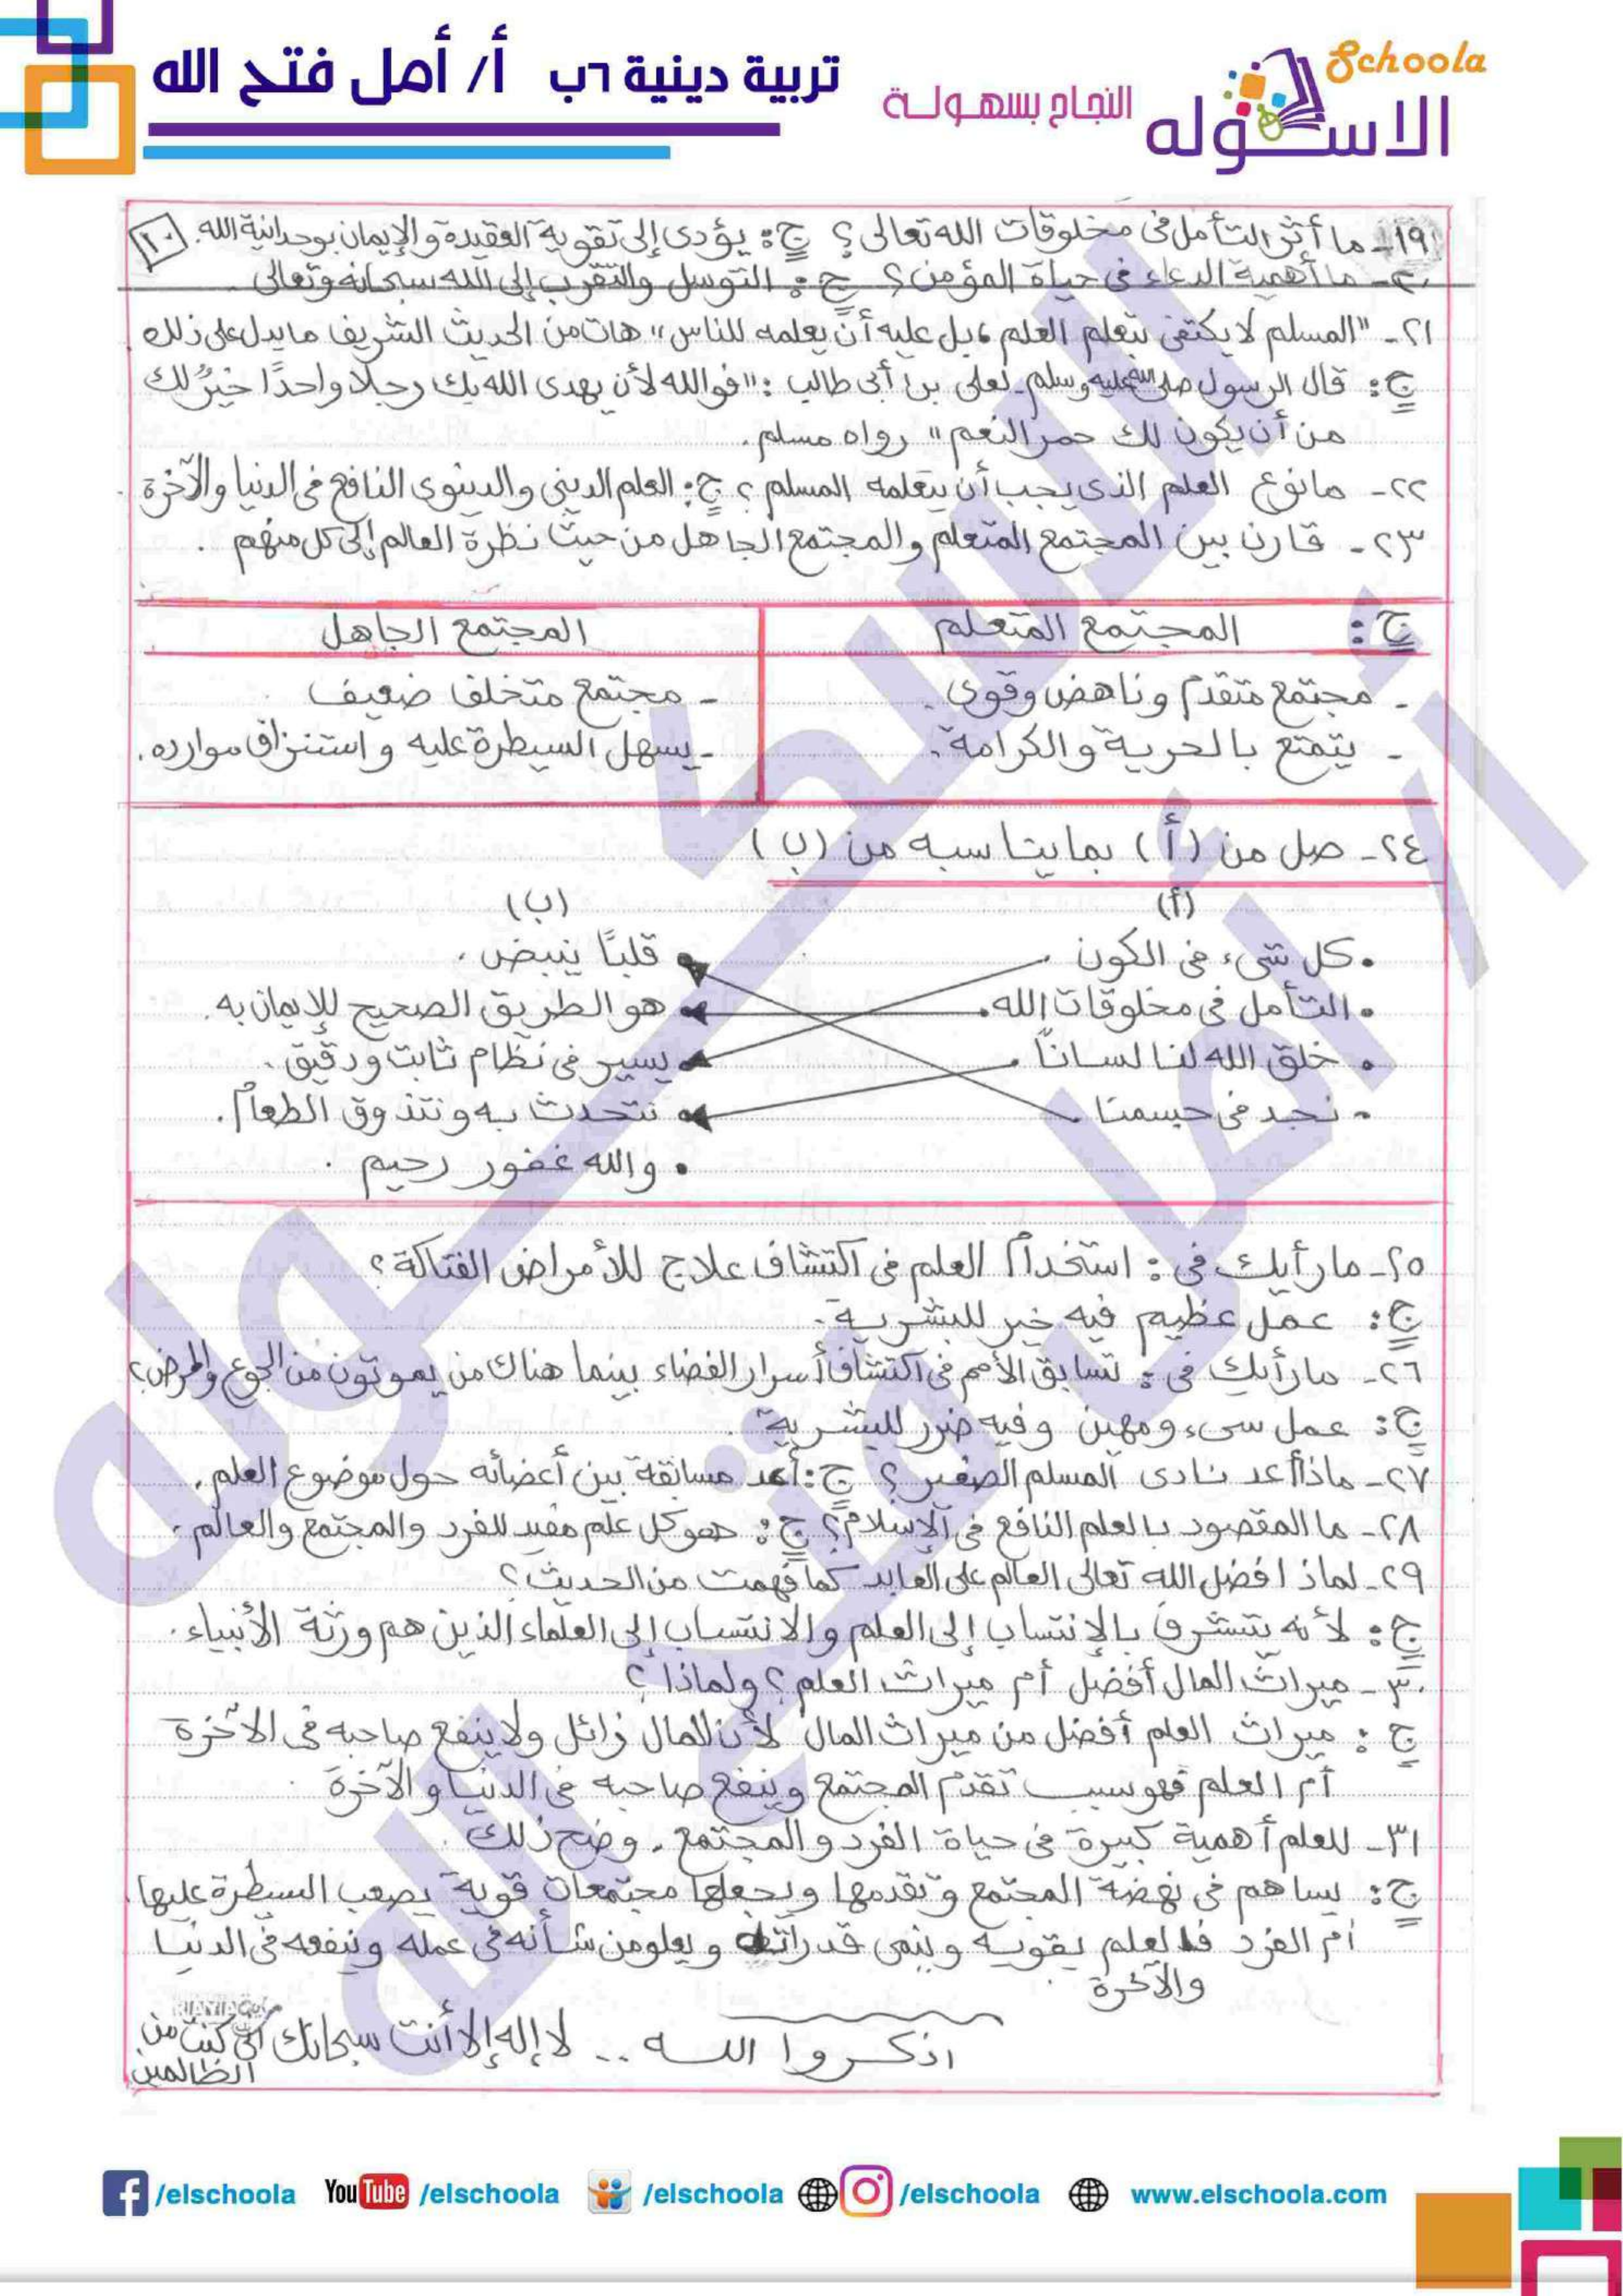 Schoola
الاسكوله
النجاح بسهولة
تربية دينية ٦ب أ/ أمل فتح الله
١٩- ما أثر التأمل فى مخلوقات الله تعالى؟ ج: يؤدى إلى تقوية العقيدة والإيمان بوحدانية الله. ١٠
٢٠- ما أهمية الدعاء فى حياة المؤمن؟ ج: التوسل والتقرب إلى الله سبحانه وتعالى.
٢١- "المسلم لا يكتفى بتعلم العلم، بل عليه أن يعلمه للناس" هات من الحديث الشريف ما يدل على ذلك.
ج: قال الرسول صلى الله عليه وسلم لعلى بن أبى طالب: "فوالله لأن يهدى الله بك رجلا واحدًا خيرٌ لك
من أن يكون لك حمر النعم" رواه مسلم.
٢٢- ما نوع العلم الذى يجب أن يتعلمه المسلم؟ ج: العلم الدينى والدينوى النافع فى الدنيا والآخرة.
٢٣- قارن بين المجتمع المتعلم والمجتمع الجاهل من حيث نظرة العالم إلى كل منهم.
ج: المجتمع المتعلم المجتمع الجاهل
- مجتمع متقدم وناهض وقوى. - مجتمع متخلف ضعيف.
- يتمتع بالحرية والكرامة. - يسهل السيطرة عليه واستنزاف موارده.
٢٤- صل من (أ) بما يناسبه من (ب)
(أ) (ب)
• كل شىء فى الكون. • قلبًا ينبض.
• التأمل فى مخلوقات الله. • هو الطريق الصحيح للإيمان به.
• خلق الله لنا لسانًا. • يسير فى نظام ثابت ودقيق.
• نجد فى جسمنا. • نتحدث به ونتذوق الطعام.
• والله غفور رحيم.
٢٥- ما رأيك فى: استخدام العلم فى اكتشاف علاج للأمراض الفتاكة؟
ج: عمل عظيم فيه خير للبشرية.
٢٦- ما رأيك فى: تسابق الأمم فى اكتشاف أسرار الفضاء بينما هناك من يموتون من الجوع والمرض؟
ج: عمل سىء ومهين وفيه ضرر للبشرية.
٢٧- ماذا أعد نادى المسلم الصغير؟ ج: أعد مسابقة بين أعضائه حول موضوع العلم.
٢٨- ما المقصود بالعلم النافع فى الإسلام؟ ج: هو كل علم مفيد للفرد والمجتمع والعالم.
٢٩- لماذا فضل الله تعالى العالم على العابد كما فهمت من الحديث؟
ج: لأنه يتشرف بالإنتساب إلى العلم والانتساب إلى العلماء الذين هم ورثة الأنبياء.
٣٠- ميراث المال أفضل أم ميراث العلم؟ ولماذا؟
ج: ميراث العلم أفضل من ميراث المال لأن المال زائل ولا ينفع صاحبه فى الآخرة
أم العلم فهو سبب تقدم المجتمع وينفع صاحبه فى الدنيا والآخرة.
٣١- للعلم أهمية كبيرة فى حياة الفرد والمجتمع. وضح ذلك.
ج: يساهم فى نهضة المجتمع وتقدمها ويجعلها مجتمعات قوية يصعب السيطرة عليها
أم الفرد فالعلم يقويه وينمى قدراته ويعلو من شأنه فى عمله وينفعه فى الدنيا
والآخرة
اذكروا الله .. لا إله إلا أنت سبحانك إنى كنت من
الظالمين
/elschoola YouTube /elschoola /elschoola /elschoola www.elschoola.com
الاسكوله
أ/ أمل فتح الله